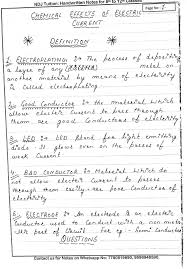 NDJ Tuition: Handwritten Notes for 6th to 12th Classes
Page No:- 1
CHEMICAL EFFECTS OF ELECTRIC
CURRENT
DEFINITION
1. ELECTROPLATING : The process of depositing
a layer of any metal on
another material by means of electricity
is called electroplating
2. Good Conductor : is the material which
allow electric current to pass through
them are good Conductors of electricity
3. LED : LED stand for light emitting
diode. It glows even on the passes of
weak Current
4. BAD CONDUCTOR : Material which do
not allow electric current to passes
through them easily are poor Conductor of
electricity
5. ELECTRODE : An electrode is an electric
Conductor used to Conduct with a non metal
part of Circuit for eg:- Semi Conductor
QUESTIONS
Contact us for Notes on Whatsapp No: